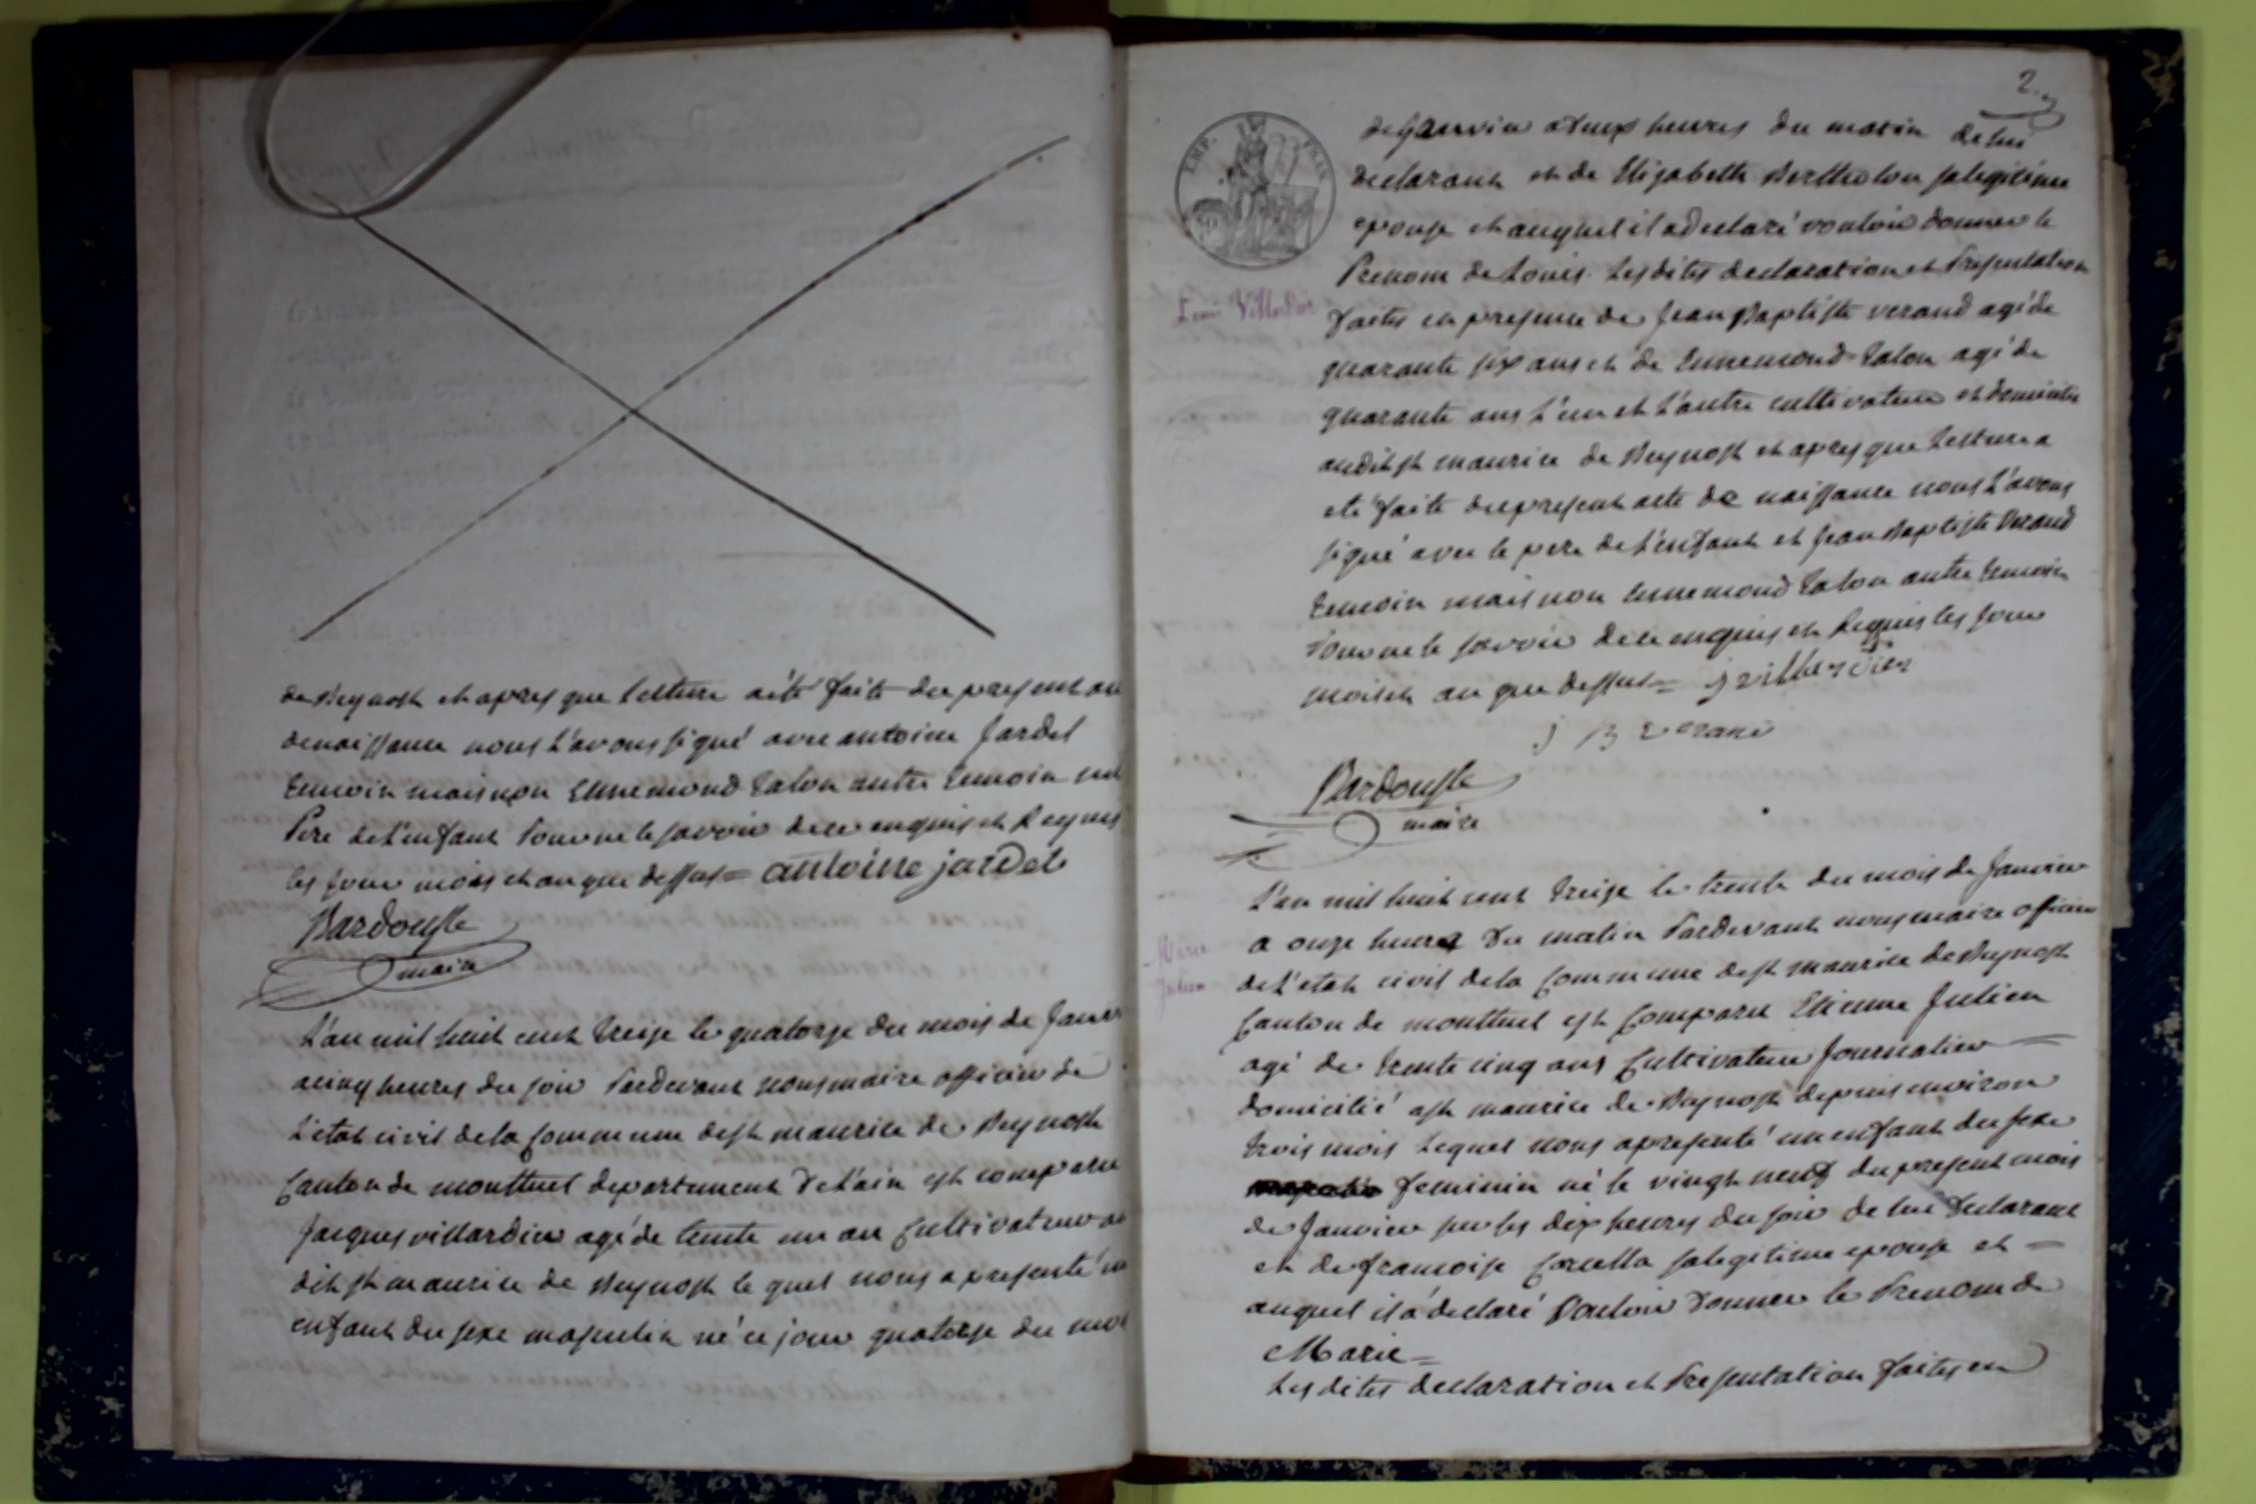 de Beynost et apres que lecture a été faite du present
de naissance nous l'avons signé avec antoine Jardet
temoin mais non Ennemond Talon autre temoin
Pere de l'enfant Pour ne le savoir de ce enquis et Requis
les jour mois et an que dessus = antoine jardet
Bardousse
maire
L'an mil huit cent treize le quatorze du mois de
a cinq heures du soir Pardevant nous maire officier de
L'etat civil de la Commune de st maurice de Beynost
Canton de montluel departement de L'ain est comparu
Jacques villardier agé de trente un an Cultivateur
dit st maurice de Beynost le quel nous a presenté
enfant du sexe masculin né ce jour quatorze du
2
EMP. FRAN.
de janvier a heures du matin de lui
declarant et de Elizabeth Bertholon sa legitime
epouse et auquel il a declaré vouloir donner le
Prenom de Louis Lesdites declaration et Presentation
Louis Villardier
faites en presence de Jean Baptiste verand agé de
quarante six ans et de Ennemond Talon agé de
quarante ans l'un et l'autre cultivateur et domicilies
audit st maurice de Beynost et apres que Lecture a
eté faite du present acte de naissance nous l'avons
signé avec le pere de l'enfant et Jean Baptiste Verand
temoin mais non Ennemond Talon autre temoin
Pour ne le savoir de ce enquis et Requis les jour
mois et an que dessus = j villardier
J B verand
Bardousse
maire
L'an mil huit cent treize le trente du mois de Janvier
a onze heures Du matin Pardevant nous maire officier
Marie
Julien
de l'etat civil de la Commune de st maurice de Beynost
Canton de montluel est Comparu Etienne Julien
agé de trente cinq ans Cultivateur Journalier
domicilié a st maurice de Beynost depuis environ
trois mois Lequel nous a presenté un enfant du sexe
feminin né le vingt neuf du present mois
de Janvier sur les dix heures du soir de lui Declarant
et de francoise sa legitime epouse et
auquel il a declaré Vouloir Donner le Prenom de
Marie =
Les dites declaration et Presentation faites en